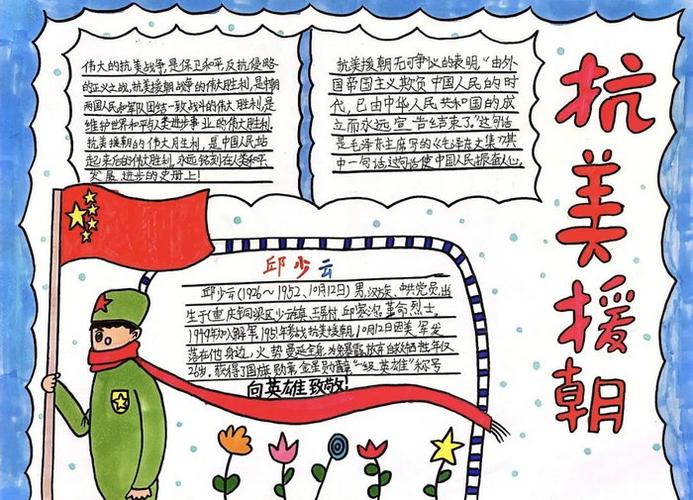 抗美援朝
伟大的抗美战争,是保卫和平反抗侵略
的正义之战,抗美援朝战争的伟大胜利,是中朝
两国人民和军队团结一致战斗的伟大胜利,是
维护世界和平与人类进步事业的伟大胜利.
抗美援朝的伟大胜利,是中国人民站
起来后的伟大胜利,永远铭刻在人类和平
发展 进步的史册上!
抗美援朝无可争议的表明,"由外
国帝国主义欺负中国人民的时
代,已由中华人民共和国的成
立而永远宣告结束了."这句话
是毛泽东主席写的《毛泽东文集》其
中一句话,这句话使中国人民振奋人心。
邱少云
邱少云(1926~1952、10月12日)男,汉族、中共党员,出
生于(重庆铜梁区少云镇玉屏村 邱家沟,革命烈士。
1949年加入解军,1951年参战抗美援朝,10月12日因美军发
落在他身边,火势曼延全身,为免暴露,放弃自救牺牲,年仅
26岁,获得了国旗勋章 金星勋章"一级英雄"称号
向英雄致敬!